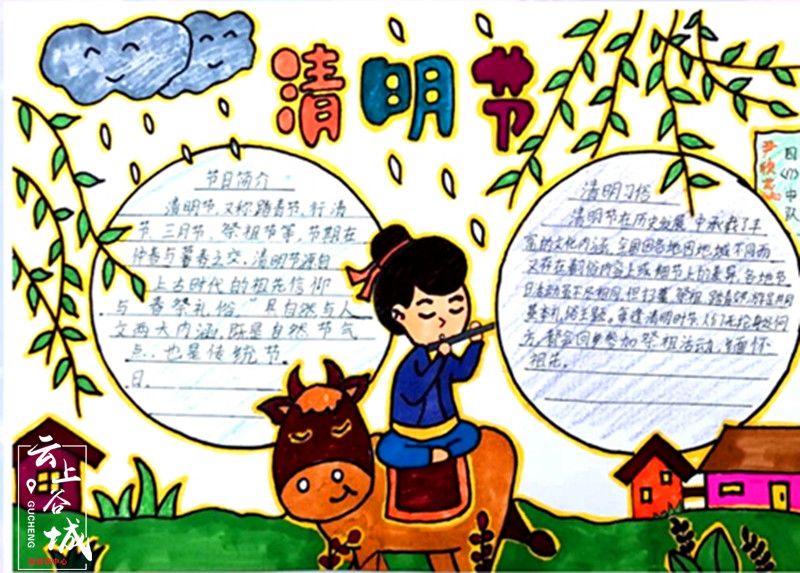 清明节
节日简介
清明节，又称踏青节、行清
节、三月节、祭祖节等，节期在
仲春与暮春之交。清明节源自
上古时代的祖先信仰
与春祭礼俗。具自然与人
文两大内涵，既是自然节气
点，也是传统节
日。
清明习俗
清明节在历史发展中承载了丰
富的文化内涵，全国各地因地域不同而
又存在着习俗内容上或细节上的差异，各地节
日活动虽不尽相同，但扫墓祭祖、踏青郊游是共同
基本礼俗主题。每逢清明时节，人们无论身处何
方，都会回乡参加祭祖活动，缅怀
祖先。
四(1)中队
云上谷城
GUCHENG